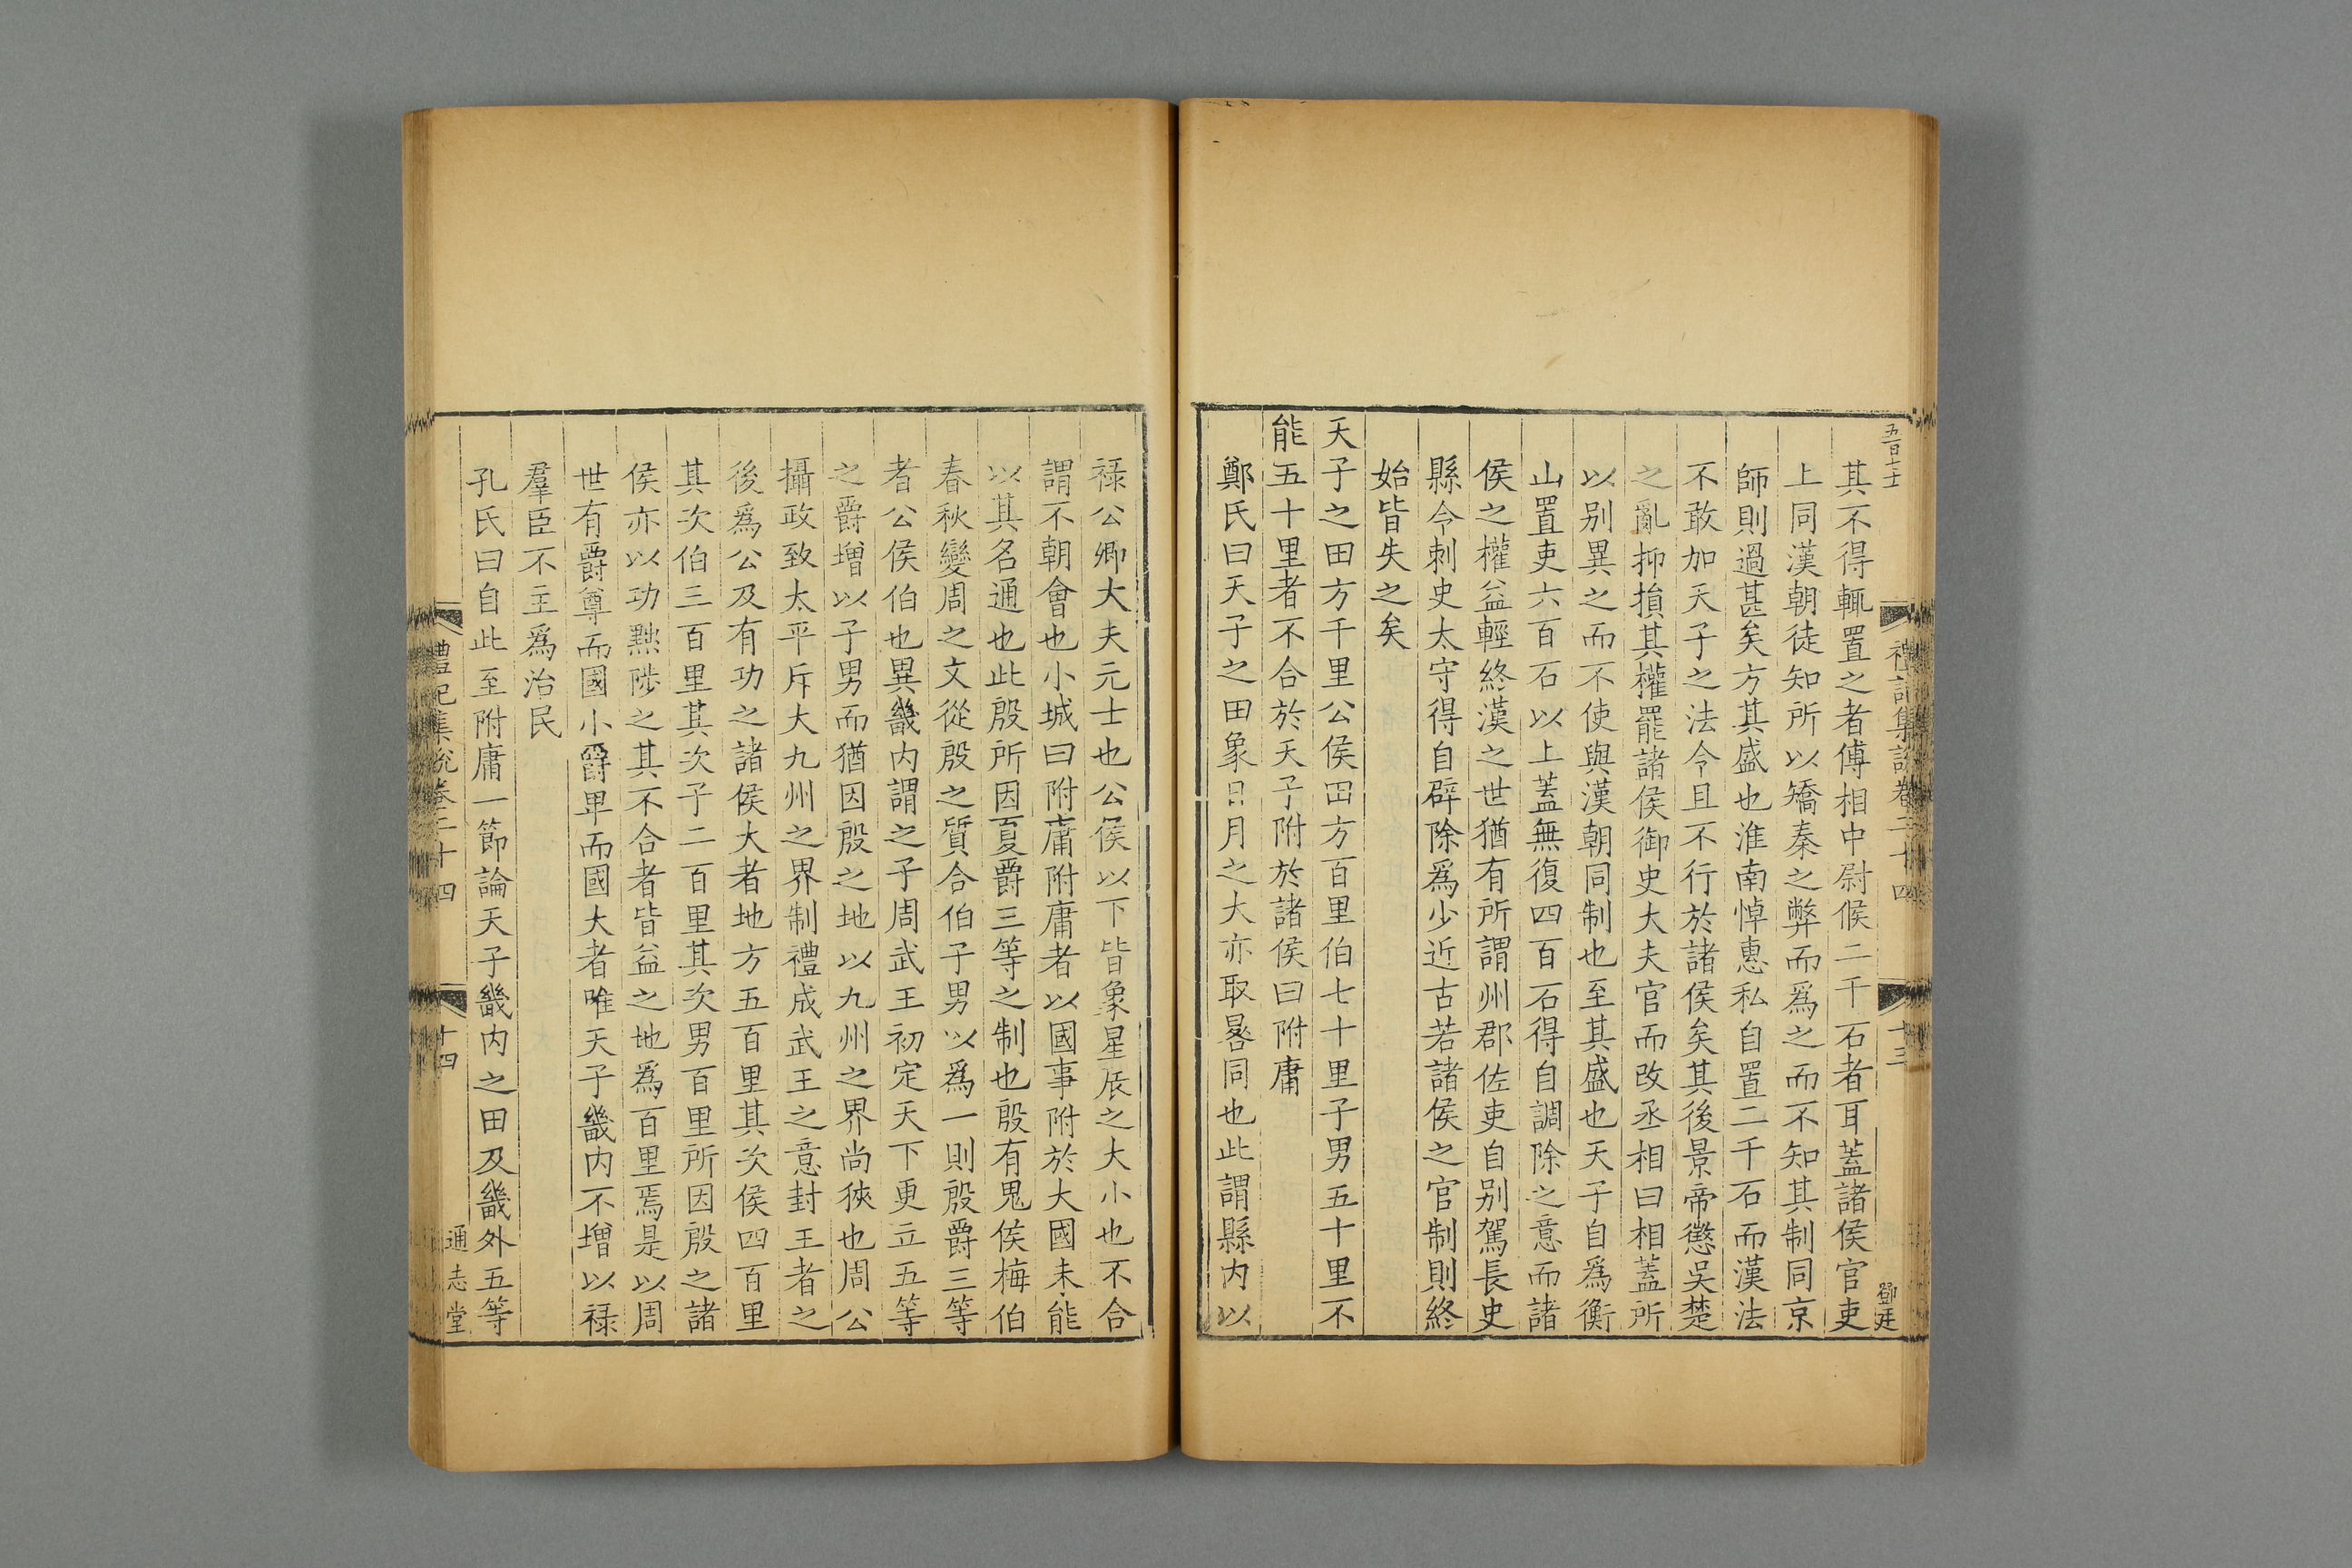 禮記集說卷二十四
十三
鄧廷
其不得輒置之者傅相中尉候二千石者耳蓋諸侯官吏
上同漢朝徒知所以矯秦之弊而爲之而不知其制同京
師則過甚矣方其盛也淮南悼惠私自置二千石而漢法
不敢加天子之法令且不行於諸侯矣其後景帝懲吳楚
之亂抑損其權罷諸侯御史大夫官而改丞相曰相蓋所
以别異之而不使與漢朝同制也至其盛也天子自爲衡
山置吏六百石以上蓋無復四百石得自調除之意而諸
侯之權益輕終漢之世猶有所謂州郡佐吏自别駕長史
縣令刺史太守得自辟除爲少近古若諸侯之官制則終
始皆失之矣
天子之田方千里公侯田方百里伯七十里子男五十里不
能五十里者不合於天子附於諸侯曰附庸
鄭氏曰天子之田象日月之大亦取晷同也此謂縣内以
祿公卿大夫元士也公侯以下皆象星辰之大小也不合
謂不朝會也小城曰附庸附庸者以國事附於大國未能
以其名通也此殷所因夏爵三等之制也殷有鬼侯梅伯
春秋變周之文從殷之質合伯子男以爲一則殷爵三等
者公侯伯也異畿内謂之子周武王初定天下更立五等
之爵增以子男而猶因殷之地以九州之界尚狹也周公
攝政致太平斥大九州之界制禮成武王之意封王者之
後爲公及有功之諸侯大者地方五百里其次侯四百里
其次伯三百里其次子二百里其次男百里所因殷之諸
侯亦以功黜陟之其不合者皆益之地爲百里焉是以周
世有爵尊而國小爵卑而國大者唯天子畿内不增以祿
羣臣不主爲治民
孔氏曰自此至附庸一節論天子畿内之田及畿外五等
禮記集說卷二十四
十四
通志堂